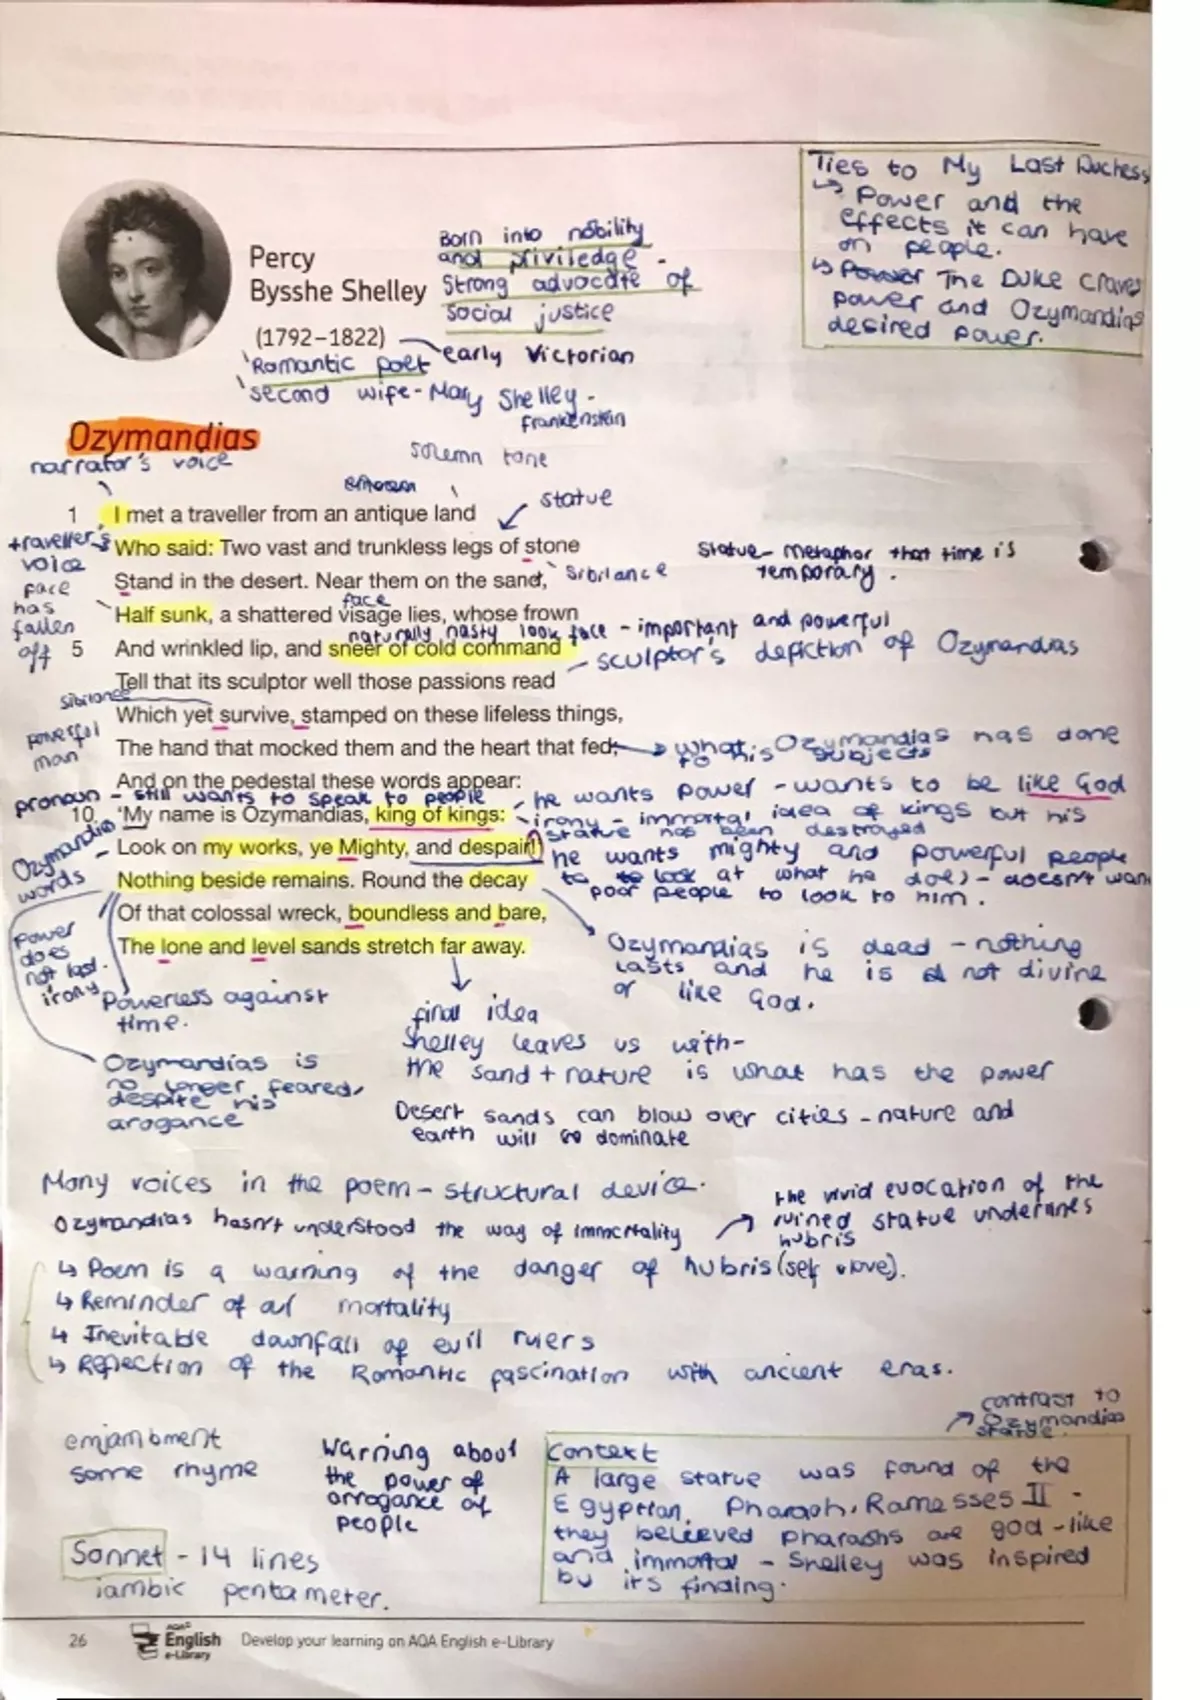 Ties to My Last Duchess
↳ Power and the
effects it can have
on people.
↳ Power The Duke craves
power and Ozymandias
desired power.
Percy
Bysshe Shelley
(1792–1822)
Born into nobility
and priviledge -
Strong advocate of
social justice
early Victorian
'Romantic poet
'second wife - Mary Shelley -
Frankenstein
Ozymandias
narrator's voice
solemn tone
statue
1 I met a traveller from an antique land
traveller's
voice
Who said: Two vast and trunkless legs of stone
Statue - metaphor that time is
temporary.
Stand in the desert. Near them on the sand,
sibilance
face
has
fallen
off
face
Half sunk, a shattered visage lies, whose frown
naturally nasty look face - important and powerful
5 And wrinkled lip, and sneer of cold command
sculptor's depiction of Ozymandias
Tell that its sculptor well those passions read
sibilance
Which yet survive, stamped on these lifeless things,
powerful
man
The hand that mocked them and the heart that fed;
what Ozymandias has done
to his subjects
And on the pedestal these words appear:
pronoun - still wants to speak to people
he wants power - wants to be like God
10 'My name is Ozymandias, king of kings:
irony - immortal idea of kings but his
statue has been destroyed
Ozymandias
words
Look on my works, ye Mighty, and despair!'
he wants mighty and powerful people
to look at what he does - doesn't want
poor people to look to him.
Nothing beside remains. Round the decay
Of that colossal wreck, boundless and bare,
The lone and level sands stretch far away.
power
does
not last.
irony
Ozymandias is dead - nothing
lasts and he is not divine
or like God.
Powerless against
time.
final idea
Shelley leaves us with -
the sand + nature is what has the power
Ozymandias is
no longer feared,
despite his
arogance
Desert sands can blow over cities - nature and
earth will dominate
Many voices in the poem - structural device.
Ozymandias hasn't understood the way of immortality
the vivid evocation of the
ruined statue undermines
hubris
↳ Poem is a warning of the danger of hubris (self love).
↳ Reminder of all mortality
↳ Inevitable downfall of evil rulers
↳ Reflection of the Romantic fascination with ancient eras.
contrast to
Ozymandias
statue.
enjambment
some rhyme
Warning about
the power of
arrogance of
people
Context
A large statue was found of the
Egyptian, Pharaoh, Ramesses II -
they believed pharaohs are god-like
and immortal - Shelley was inspired
by its finding.
Sonnet - 14 lines
iambic pentameter.
26 AQA English e-Library Develop your learning on AQA English e-Library